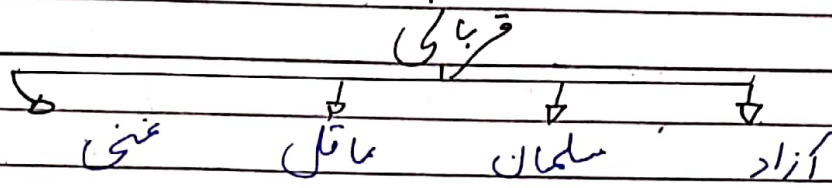 قربانی
آزاد مسلمان عاقل غنی